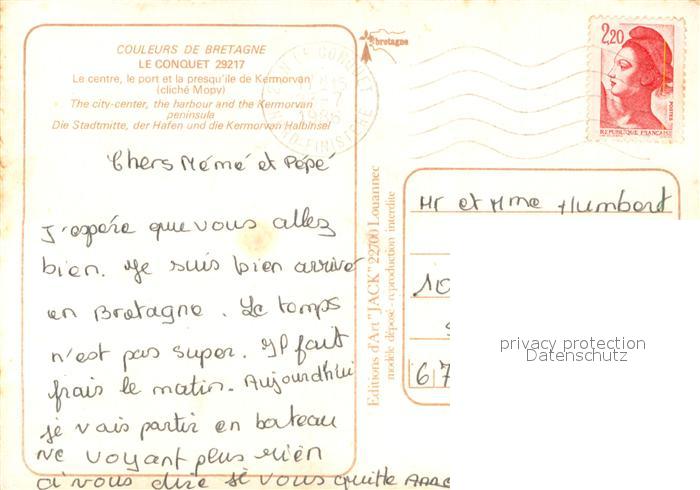 COULEURS DE BRETAGNE
LE CONQUET 29217
Le centre, le port et la presqu'ile de Kermorvan
(cliché Mopy)
The city-center, the harbour and the Kermorvan
peninsula
Die Stadtmitte, der Hafen und die Kermorvan Halbinsel
bretagne
2,20
POSTES
REPUBLIQUE FRANÇAISE
LE CONQUET
1986
FINISTERE
Chers Mémé et Pépé
J'espère que vous allez
bien. Je suis bien arrivé
en Bretagne. Le temps
n'est pas super. Il fait
frais le matin. Aujourd'hui
je vais partir en bateau
ne voyant plus rien
à vous dire je vous quitte
Editions d'Art "JACK" 22700 Louannec
modèle déposé - reproduction interdite
Mr et Mme Humbert
10
67
privacy protection
Datenschutz